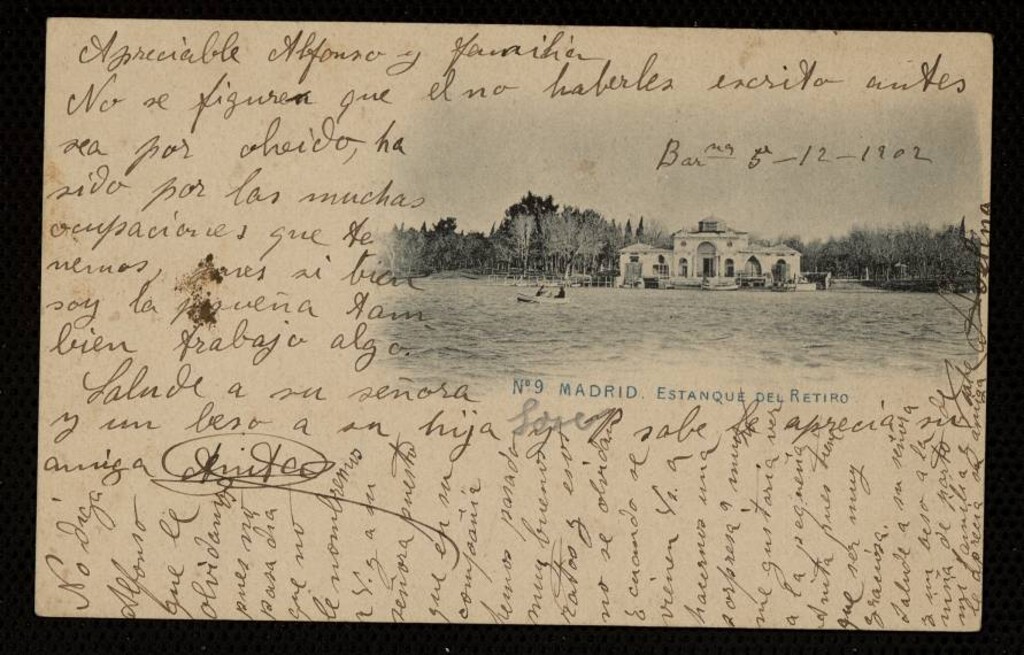 Apreciable Alfonso y familia
No se figuren que el no haberles escrito antes
sea por olvido, ha
Bar.na 5-12-1902
sido por las muchas
ocupaciones que te
nemos, pues si bien
soy la pequeña tam
bien trabajo algo.
Salude a su señora
Nº 9 MADRID. ESTANQUE DEL RETIRO
y un beso a su hija y sabe le aprecia su
amiga Anita
No diga
Alfonso
que le
olvidamos
pues no
pasa dia
que no
le nombremos
a V. y a su
señora puesto
que en su
compañia
hemos pasado
muy buenos
ratos y esos
no se olvidan
a cuando se
vienen Vs. a
hacernos una
sorpresa mucho
me gustaria ver
a la pequeña
Anita pues tiene
que ser muy
graciosa.
Salude a su señora
a un beso a la
niña de parte de
mi familia y sabe
le aprecia su amiga